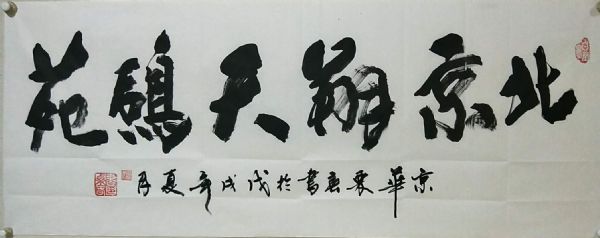 北京翔天鵞苑
京華書於戊戌年夏月